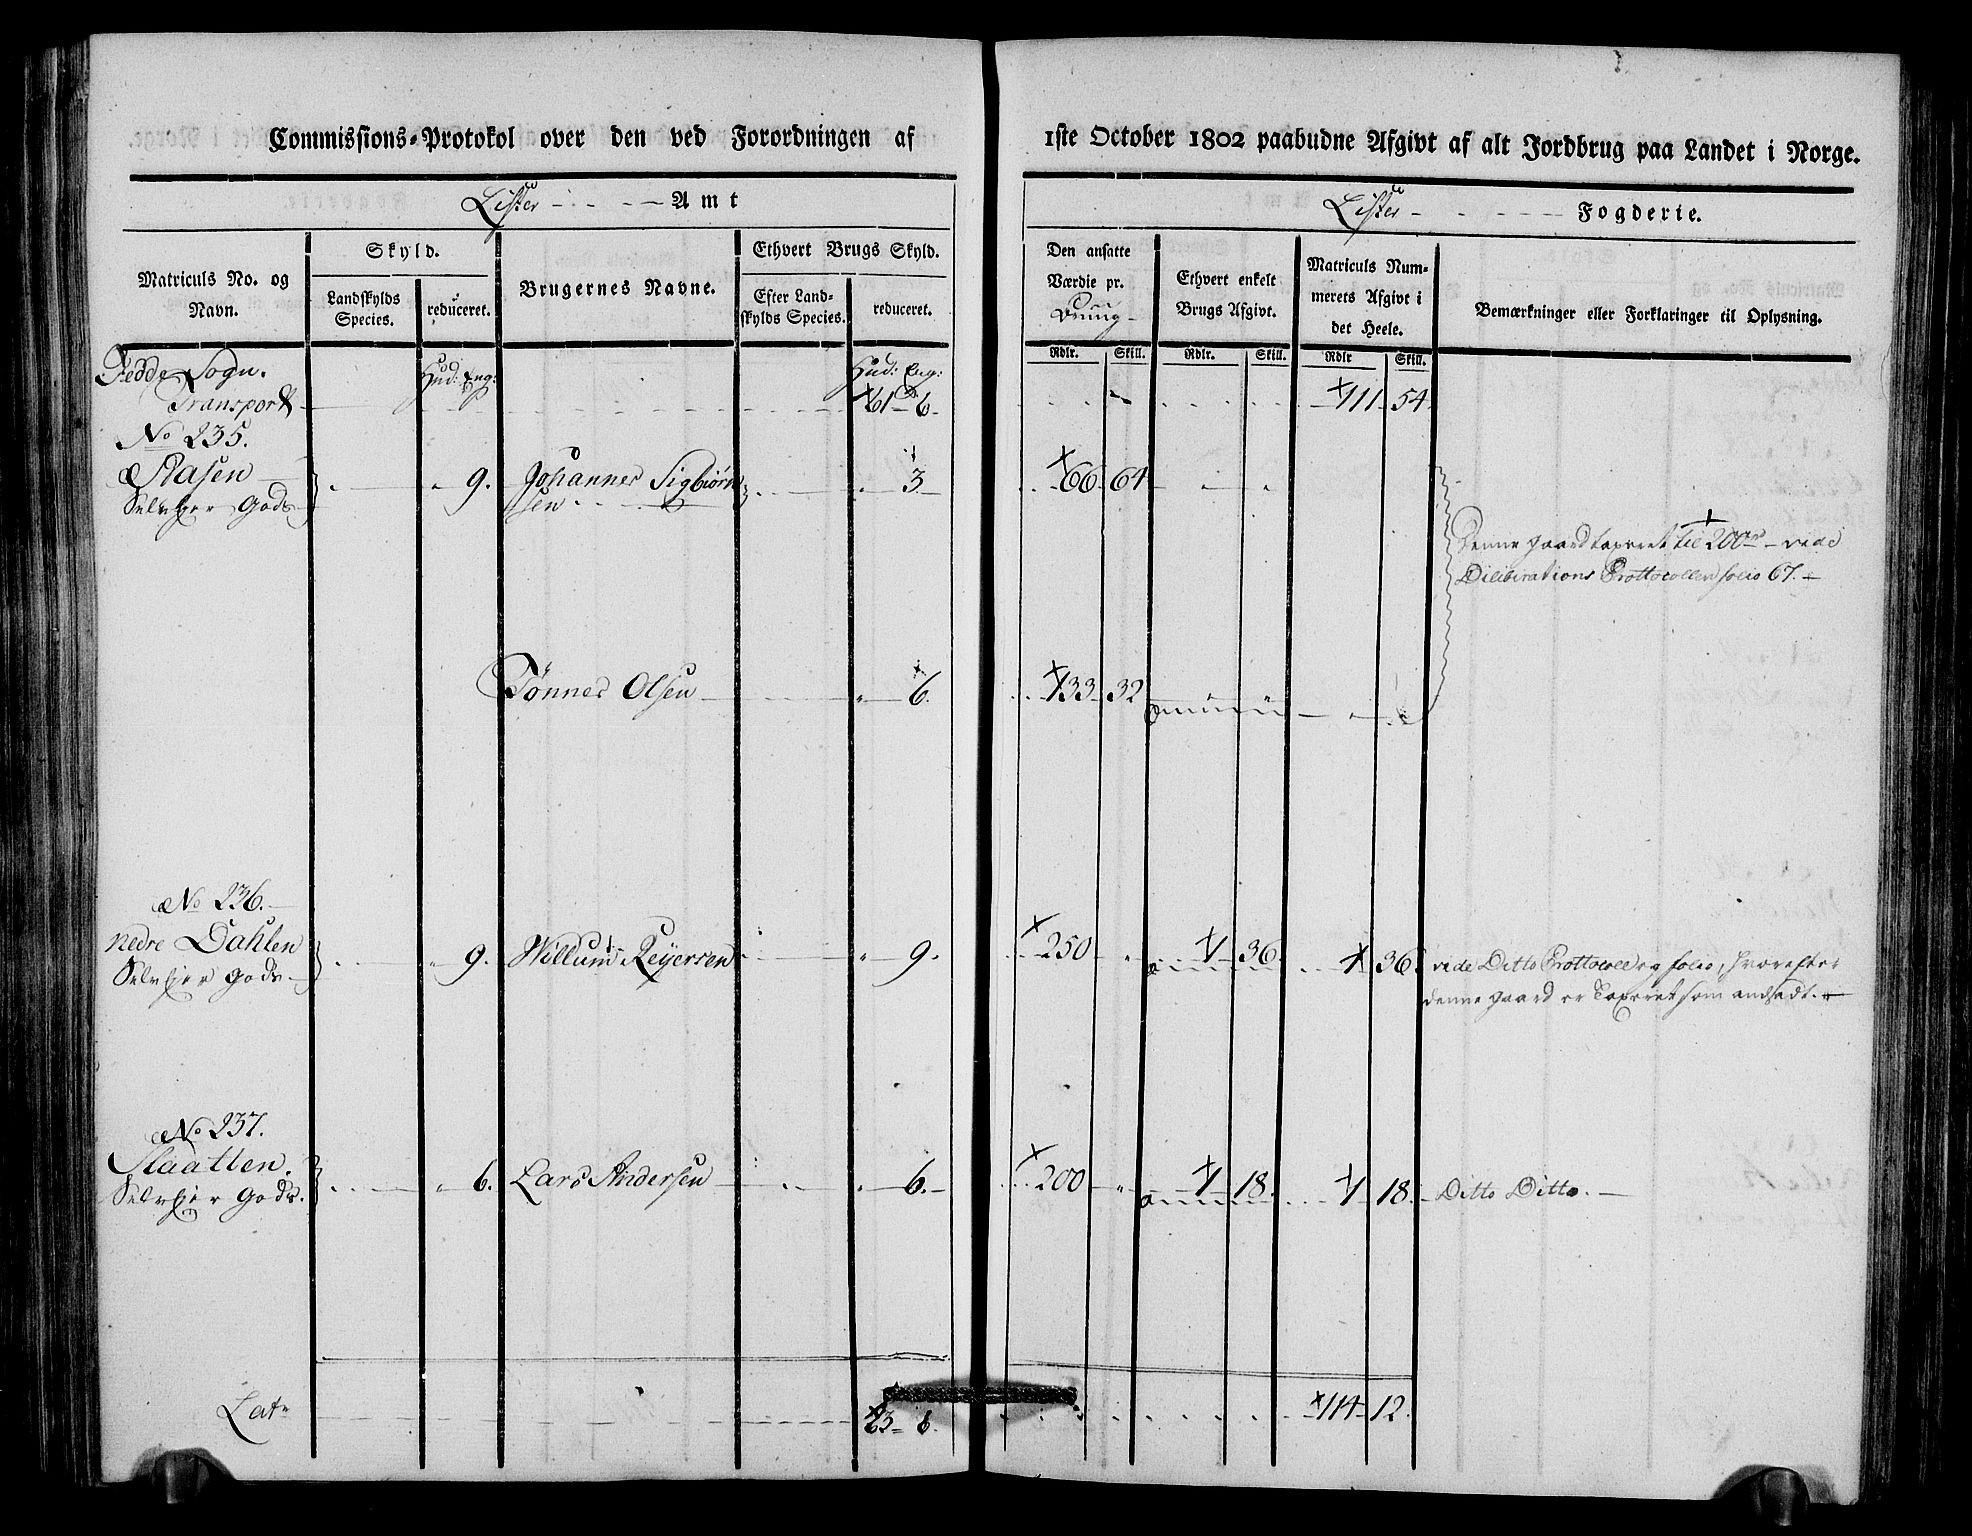 Commissions-Protokol over den ved Forordningen af 1ste October 1802 paabudne Afgivt af alt Jordbrug paa Landet i Norge.
Lister Amt
Lister Fogderie.
Matriculs No. og Navn.
Skyld.
Landskylds Species.
reduceret.
Brugernes Navne.
Ethvert Brugs Skyld.
Efter Landskylds Species.
reduceret.
Den ansatte Værdie pr.
Ethvert enkelt Brugs Afgivt.
Matriculs Nummerets Afgivt i det Heele.
Bemærkninger eller Forklaringer til Oplysning.
Rdlr. Skill. Rdlr. Skill. Rdlr Skill.
Fedde Sogn. Hud: Eng: Hud: Eng:
Transport 61 6. 111 54.
No 235.
9. Johannes Sigbiørn 3 66 64
Selveier Gods sen
Denne gaard taxeret til 200 rd vide
Deliberations Prottocollen folio 67.
Tønnes Olsen 6. 133 32
No 236.
nedre Dahlen 9. Willum Reyersen 9. 250 " 1 36 1 36. vide Ditto Prottocoll og folio, hvorefter
Selveier Gods denne gaard er Taxeret som andsadt.
No 237.
Slaatten. 6. Lars Andersen 6. 200 " 1 18. 1 18. Ditto Ditto.
Selveier Gods.
Lats 63 6. 114 12.